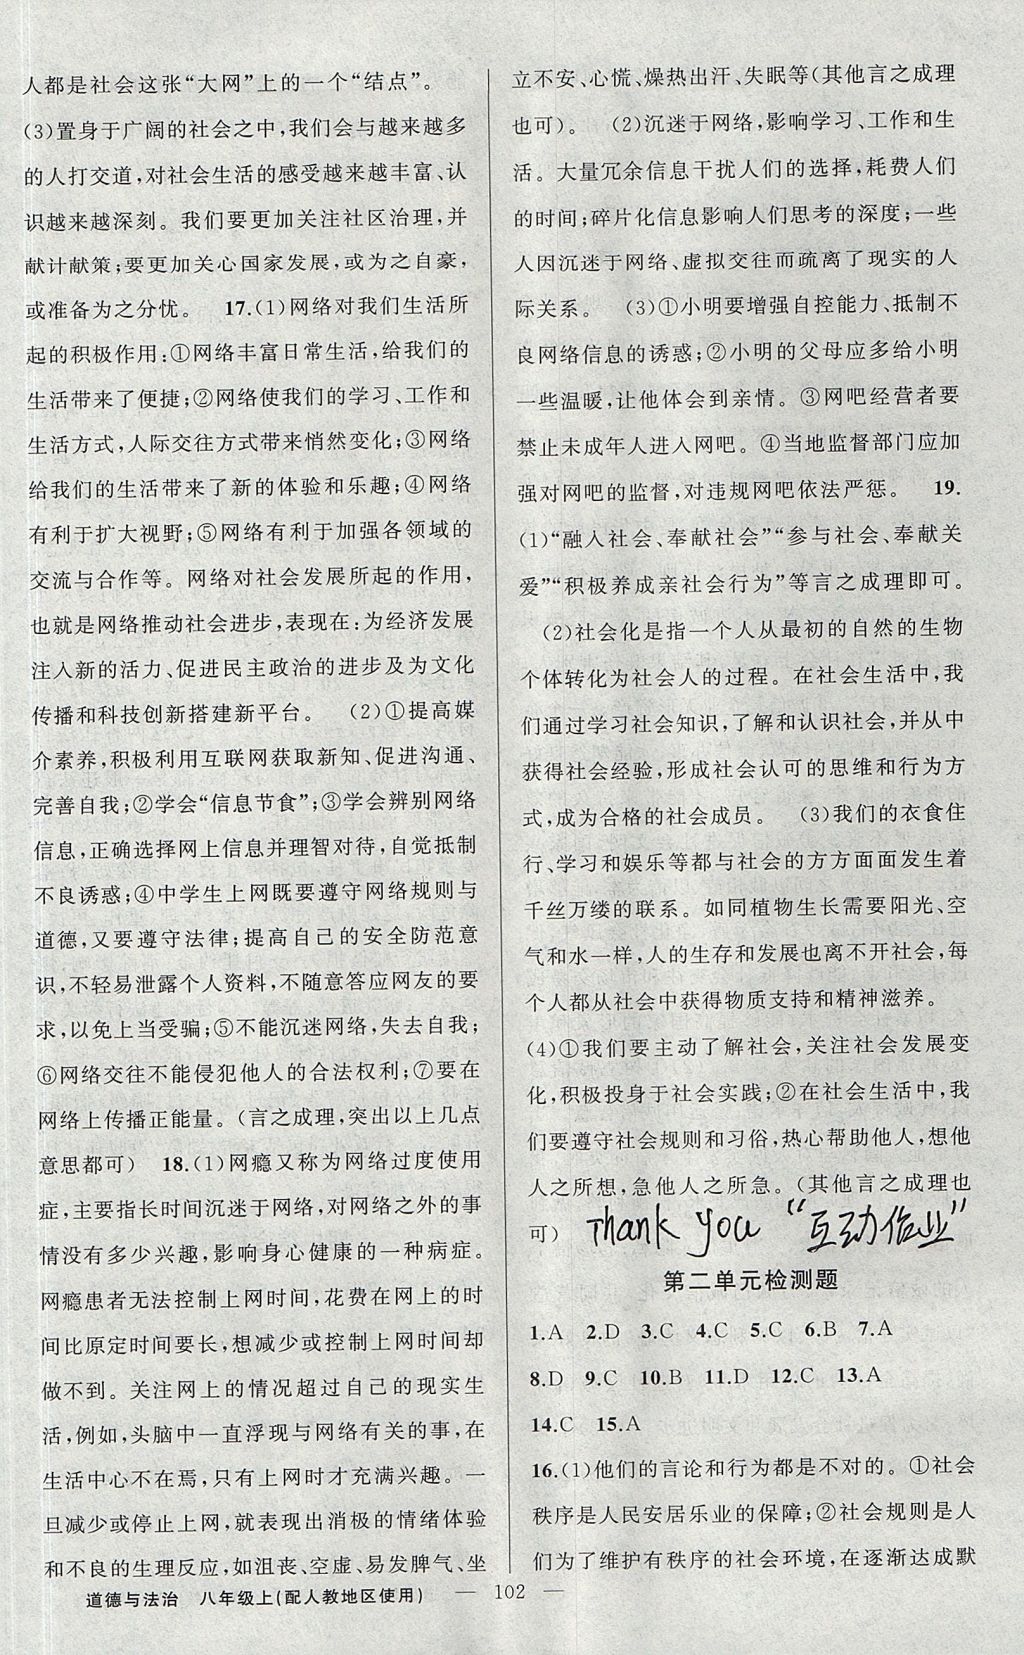 人都是社会这张“大网”上的一个“结点”。
(3)置身于广阔的社会之中,我们会与越来越多
的人打交道,对社会生活的感受越来越丰富、认
识越来越深刻。我们要更加关注社区治理,并
献计献策;要更加关心国家发展,或为之自豪,
或准备为之分忧。 17.(1)网络对我们生活所
起的积极作用:①网络丰富日常生活,给我们的
生活带来了便捷;②网络使我们的学习、工作和
生活方式,人际交往方式带来悄然变化;③网络
给我们的生活带来了新的体验和乐趣;④网络
有利于扩大视野;⑤网络有利于加强各领域的
交流与合作等。网络对社会发展所起的作用,
也就是网络推动社会进步,表现在:为经济发展
注入新的活力、促进民主政治的进步及为文化
传播和科技创新搭建新平台。 (2)①提高媒
介素养,积极利用互联网获取新知、促进沟通、
完善自我;②学会“信息节食”;③学会辨别网络
信息,正确选择网上信息并理智对待,自觉抵制
不良诱惑;④中学生上网既要遵守网络规则与
道德,又要遵守法律;提高自己的安全防范意
识,不轻易泄露个人资料,不随意答应网友的要
求,以免上当受骗;⑤不能沉迷网络,失去自我;
⑥网络交往不能侵犯他人的合法权利;⑦要在
网络上传播正能量。(言之成理,突出以上几点
意思都可) 18.(1)网瘾又称为网络过度使用
症,主要指长时间沉迷于网络,对网络之外的事
情没有多少兴趣,影响身心健康的一种病症。
网瘾患者无法控制上网时间,花费在网上的时
间比原定时间要长,想减少或控制上网时间却
做不到。关注网上的情况超过自己的现实生
活,例如,头脑中一直浮现与网络有关的事,在
生活中心不在焉,只有上网时才充满兴趣。一
旦减少或停止上网,就表现出消极的情绪体验
和不良的生理反应,如沮丧、空虚、易发脾气、坐
立不安、心慌、燥热出汗、失眠等(其他言之成理
也可)。 (2)沉迷于网络,影响学习、工作和生
活。大量冗余信息干扰人们的选择,耗费人们
的时间;碎片化信息影响人们思考的深度;一些
人因沉迷于网络、虚拟交往而疏离了现实的人
际关系。 (3)①小明要增强自控能力、抵制不
良网络信息的诱惑;②小明的父母应多给小明
一些温暖,让他体会到亲情。③网吧经营者要
禁止未成年人进入网吧。④当地监督部门应加
强对网吧的监督,对违规网吧依法严惩。 19.
(1)“融入社会、奉献社会”“参与社会、奉献关
爱”“积极养成亲社会行为”等言之成理即可。
(2)社会化是指一个人从最初的自然的生物
个体转化为社会人的过程。在社会生活中,我
们通过学习社会知识,了解和认识社会,并从中
获得社会经验,形成社会认可的思维和行为方
式,成为合格的社会成员。 (3)我们的衣食住
行、学习和娱乐等都与社会的方方面面发生着
千丝万缕的联系。如同植物生长需要阳光、空
气和水一样,人的生存和发展也离不开社会,每
个人都从社会中获得物质支持和精神滋养。
(4)①我们要主动了解社会,关注社会发展变
化,积极投身于社会实践;②在社会生活中,我
们要遵守社会规则和习俗,热心帮助他人,想他
人之所想,急他人之所急。(其他言之成理也
可) Thank you “互动作业”
第二单元检测题
1.A 2.D 3.C 4.C 5.C 6.B 7.A
8.D 9.C 10.B 11.D 12.C 13.A
14.C 15.A
16.(1)他们的言论和行为都是不对的。①社会
秩序是人民安居乐业的保障;②社会规则是人
们为了维护有秩序的社会环境,在逐渐达成默
道德与法治 八年级上(配人教地区使用) — 102 —